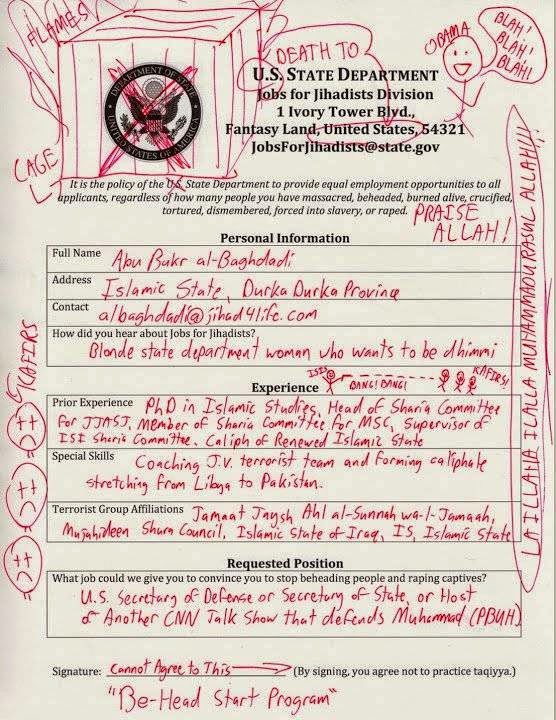 FLAMES
CAGE
DEPARTMENT OF STATE
UNITED STATES OF AMERICA
DEATH TO
U.S. STATE DEPARTMENT
Jobs for Jihadists Division
1 Ivory Tower Blvd.,
Fantasy Land, United States, 54321
JobsForJihadists@state.gov
OBAMA
BLAH!
BLAH!
BLAH!
It is the policy of the U.S. State Department to provide equal employment opportunities to all
applicants, regardless of how many people you have massacred, beheaded, burned alive, crucified,
tortured, dismembered, forced into slavery, or raped.
PRAISE
ALLAH!
LA ILLAHA ILALLA MUHAMMADU RASUL ALLAH!!!
Personal Information
Full Name
Abu Bakr al-Baghdadi
Address
Islamic State, Durka Durka Province
Contact
albaghdadi@jihad4life.com
How did you hear about Jobs for Jihadists?
Blonde state department woman who wants to be dhimmi
KAFIRS
ISIS
BANG! BANG!
KAFIRS!
Experience
Prior Experience
PhD in Islamic Studies, Head of Sharia Committee
for JJASJ, Member of Sharia Committee for MSC, Supervisor of
ISI Sharia Committee, Caliph of Renewed Islamic State
Special Skills
Coaching J.V. terrorist team and forming caliphate
stretching from Libya to Pakistan.
Terrorist Group Affiliations
Jamaat Jaysh Ahl al-Sunnah wa-l-Jamaah,
Mujahideen Shura Council, Islamic State of Iraq, IS, Islamic State
Requested Position
What job could we give you to convince you to stop beheading people and raping captives?
U.S. Secretary of Defense or Secretary of State, or Host
of Another CNN Talk Show that defends Muhammad (PBUH)
Signature: Cannot Agree to This (By signing, you agree not to practice taqiyya.)
"Be-Head Start Program"